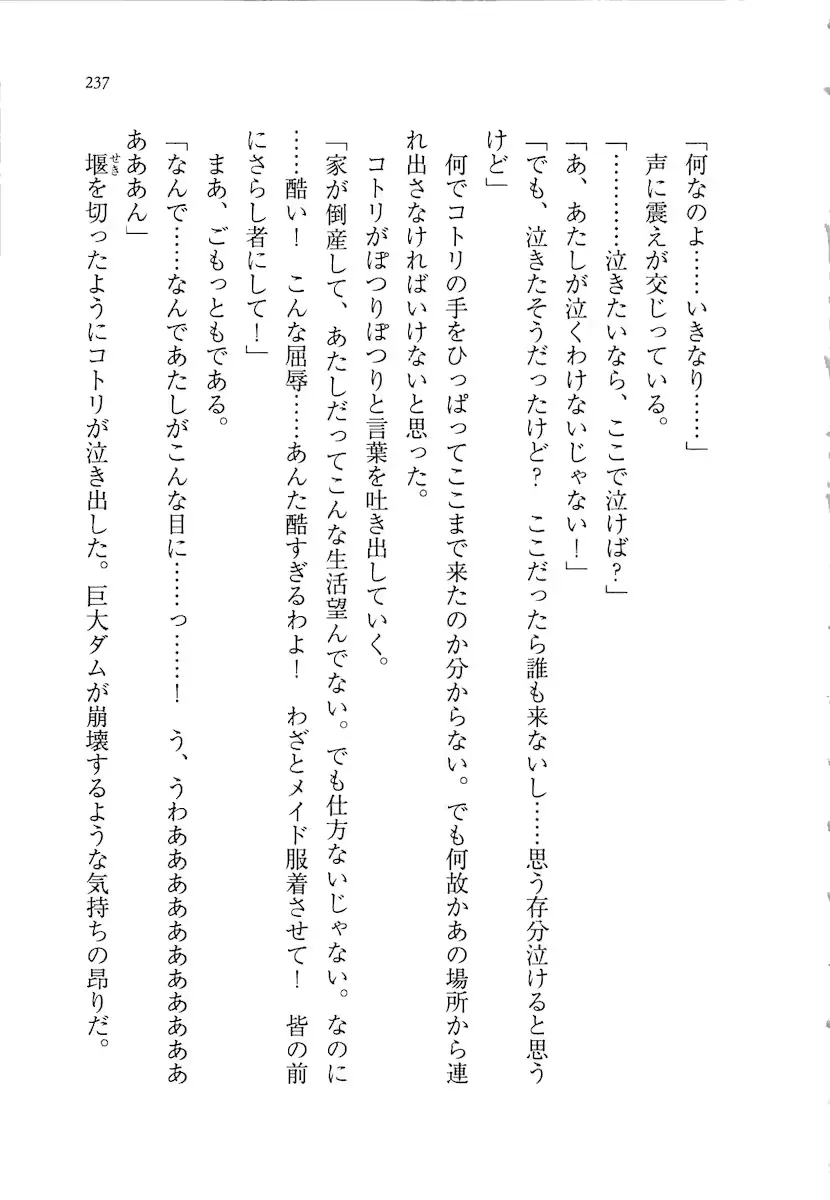 237
「何なのよ……いきなり……」
声に震えが交じっている。
「…………泣きたいなら、ここで泣けば？」
「あ、あたしが泣くわけないじゃない！」
「でも、泣きたそうだったけど？　ここだったら誰も来ないし……思う存分泣けると思う
けど」
何でコトリの手をひっぱってここまで来たのか分からない。でも何故かあの場所から連
れ出さなければいけないと思った。
コトリがぽつりぽつりと言葉を吐き出していく。
「家が倒産して、あたしだってこんな生活望んでない。でも仕方ないじゃない。なのに
……酷い！　こんな屈辱……あんた酷すぎるわよ！　わざとメイド服着させて！　皆の前
にさらし者にして！」
まあ、ごもっともである。
「なんで……なんであたしがこんな目に……っ……！　う、うわあああああああああああ
ああああん」
堰を切ったようにコトリが泣き出した。巨大ダムが崩壊するような気持ちの昂りだ。
せき